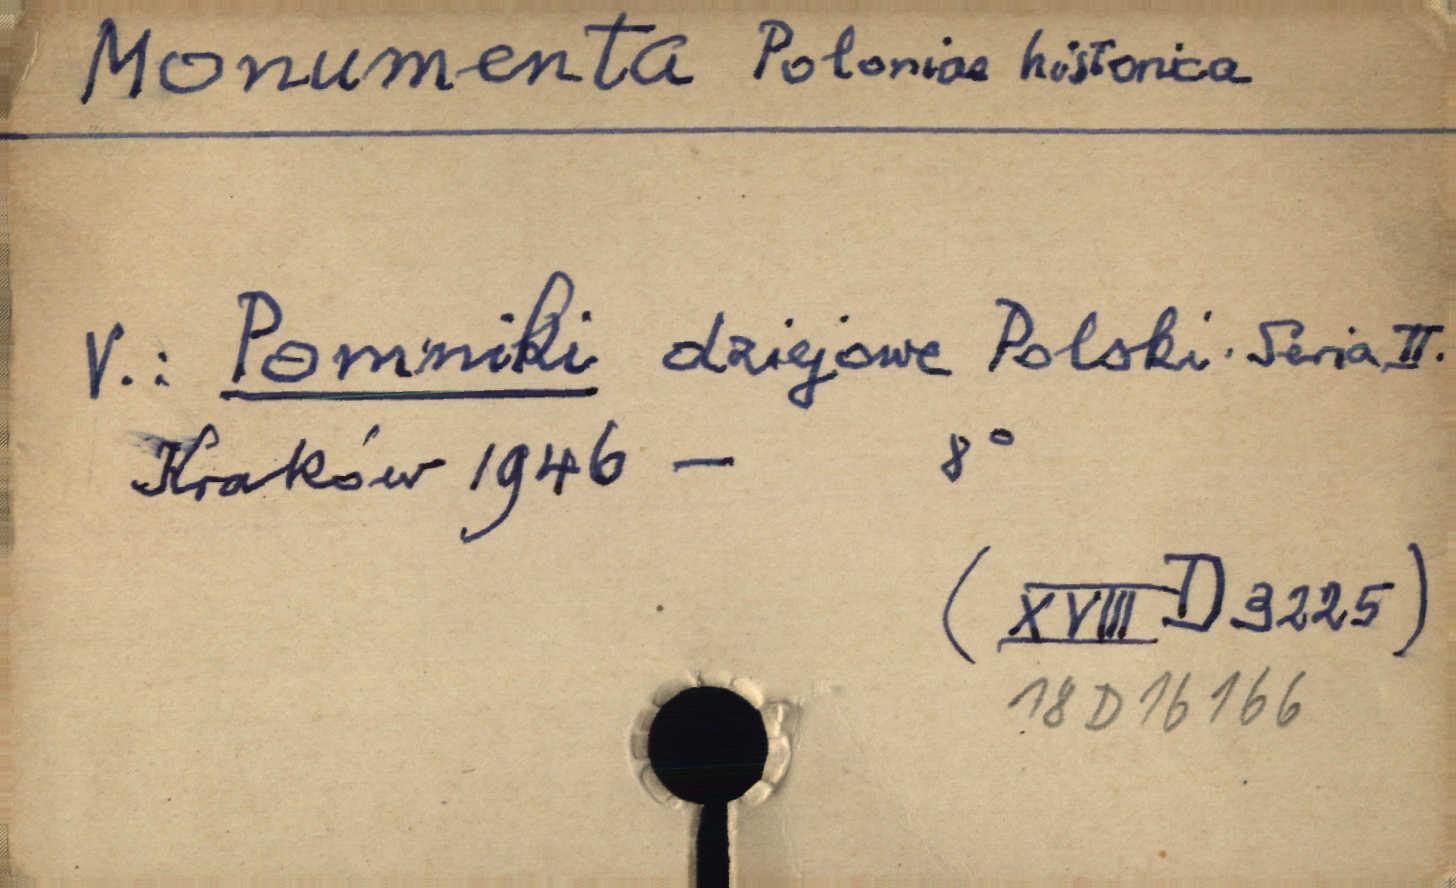 Monumenta Poloniae historica
V.: Pomniki dziejowe Polski. Seria II.
Kraków 1946 — 8°
(XVIII D 3225)
18 D 16 166